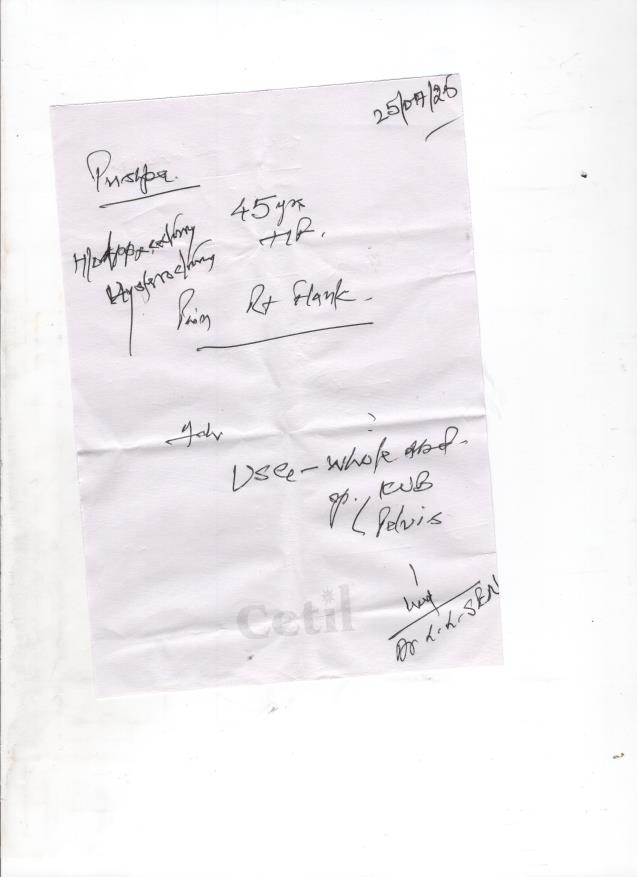 25/07/25
Pushpa
45 yrs
H/o Appendectomy
Hysterectomy
Pain Rt Flank.
Adv
USG - Whole abd.
KUB
Pelvis
Cetil
Dr.